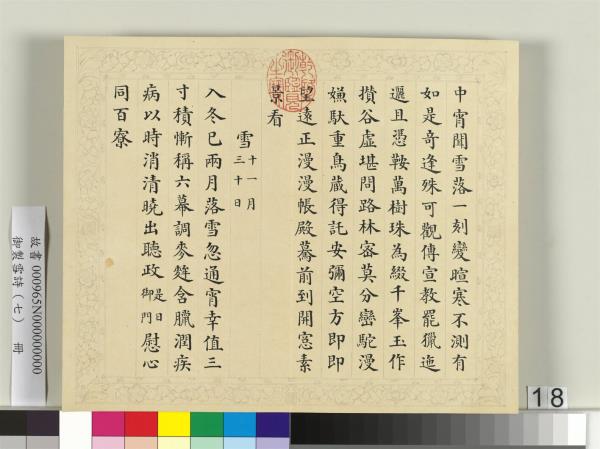 中宵聞雪落一刻變暄寒不測有
如是奇逢殊可觀傳宣教罷獵迤
邐且憑鞍萬樹珠為綴千峯玉作
攢谷虛堪問路林密莫分巒駝漫
嫌馱重鳥藏得託安彌空方即即
望遠正漫漫帳殿驀前到開窓素
景看
雪十一月三十日
入冬已兩月落雪忽通宵幸值三
寸積慚稱六幕調麥姓含臘潤疾
病以時消清曉出聽政是日御門慰心
同百寮
故書000965N000000000
御製雪詩(七) 冊
18